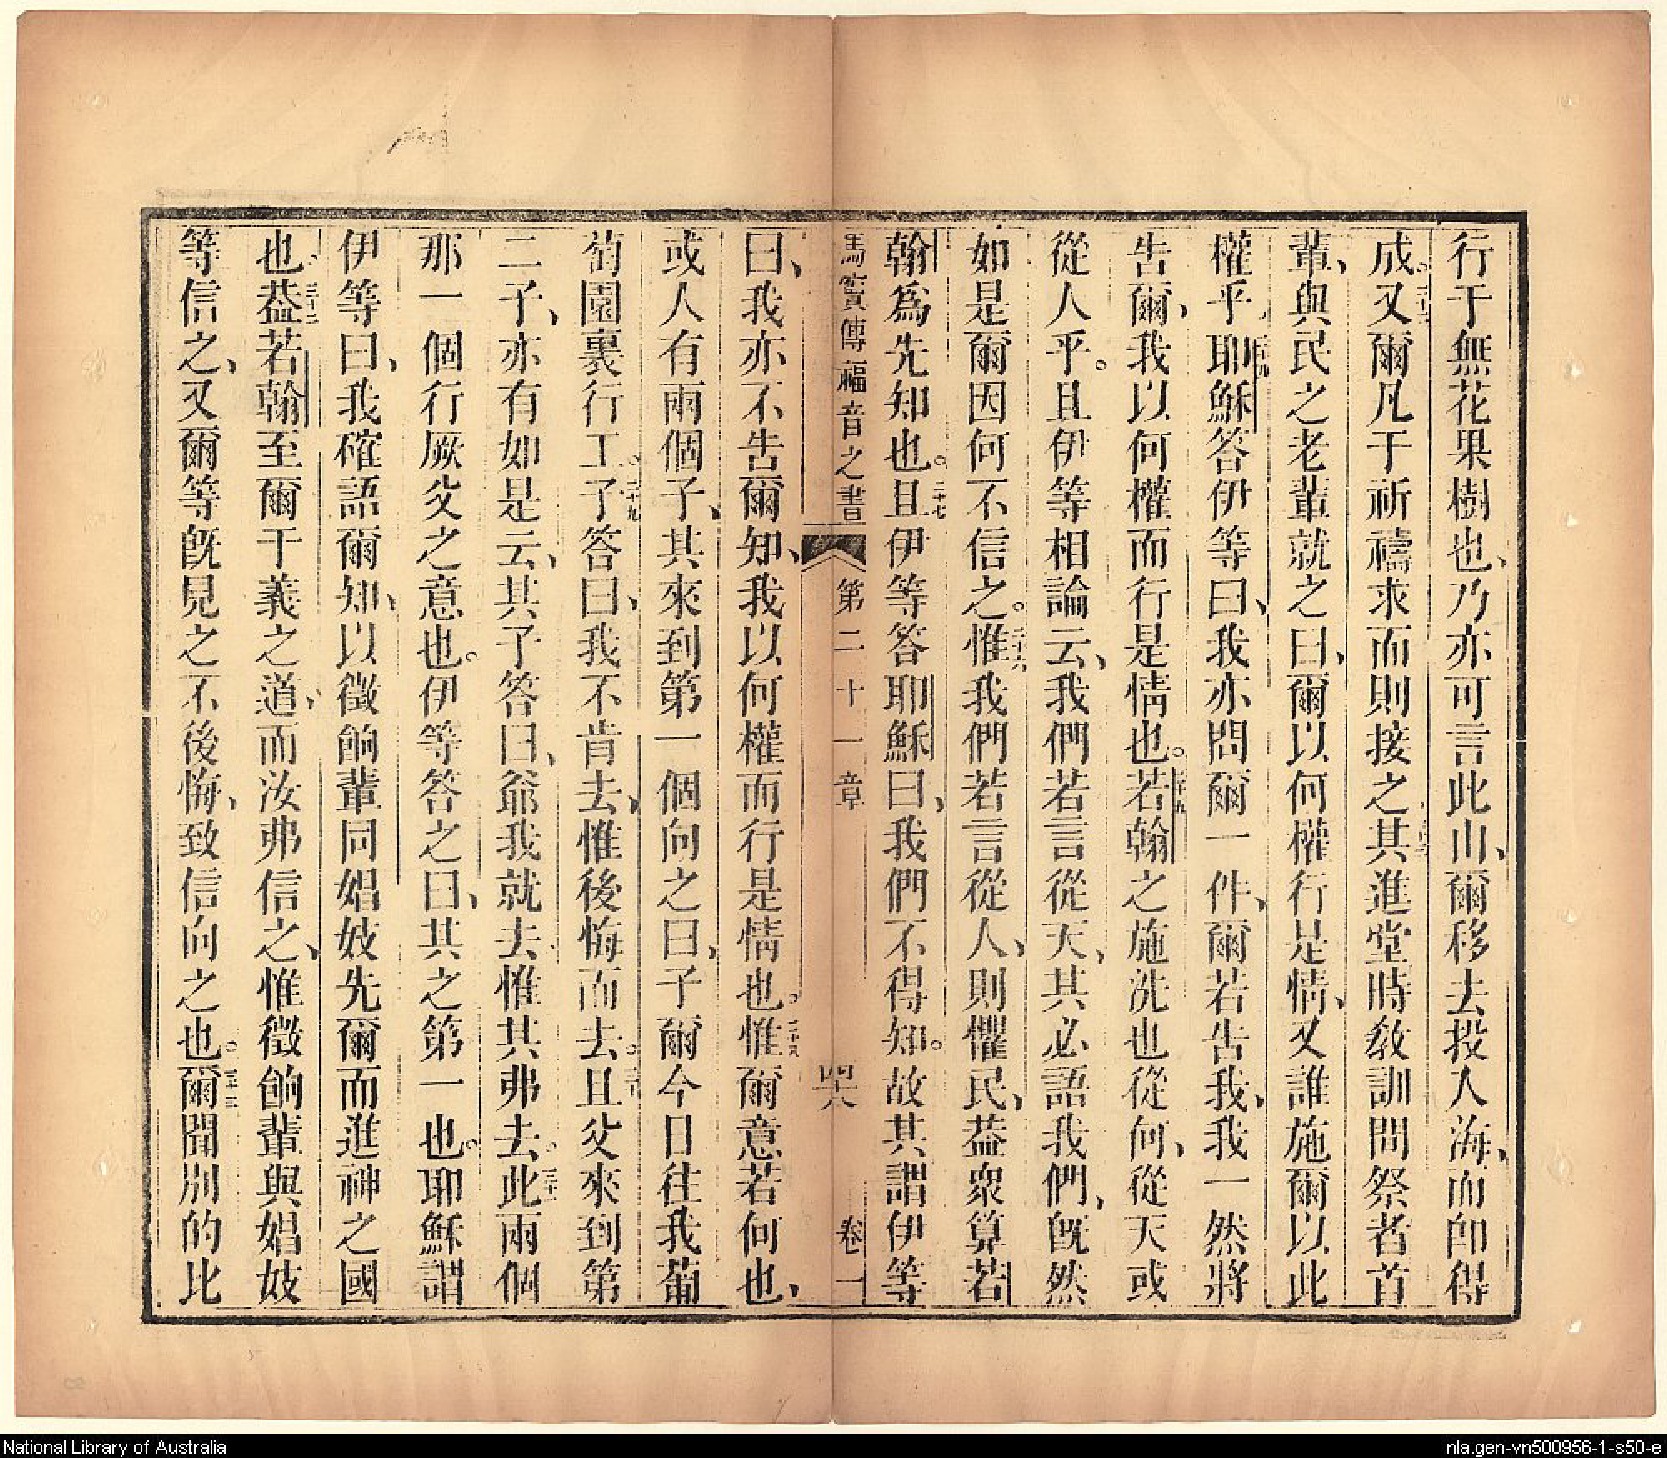 行于無花果樹也、乃亦可言此山、爾移去投入海、而即得
成。又爾凡于祈禱求而則接之。其進堂時教訓問祭者首
輩、與民之老輩就之曰、爾以何權行是情、又誰施爾以此
權乎。耶穌答伊等曰、我亦問爾一件、爾若告我、我一然將
告爾、我以何權而行是情也。若翰之施洗也從何、從天或
從人乎。且伊等相論云、我們若言從天、其必語我們、旣然
如是爾因何不信之。惟我們若言從人、則懼民、葢衆算若
翰爲先知也。且伊等答耶穌曰、我們不得知。故其謂伊等
馬竇傳福音之書 第二十一章 四六 卷一
曰、我亦不吿爾知、我以何權而行是情也。惟爾意若何也、
或人有兩個子、其來到第一個向之曰、子爾今日往我葡
萄園裏行工。了答曰、我不肯去、惟後悔而去。且父來到第
二子、亦有如是云、其子答曰、爺我就去、惟其弗去。此兩個
那一個行厥父之意也。伊等答之曰、其之第一也。耶穌謂
伊等曰、我確語爾知、以徵餉輩同娼妓先爾而進神之國
也、葢若翰至爾于義之道、而汝弗信之、惟徵餉輩與娼妓
等信之、又爾等旣見之不後悔、致信向之也。爾聞別的比
National Library of Australia
nla.gen-vn500956-1-s50-e